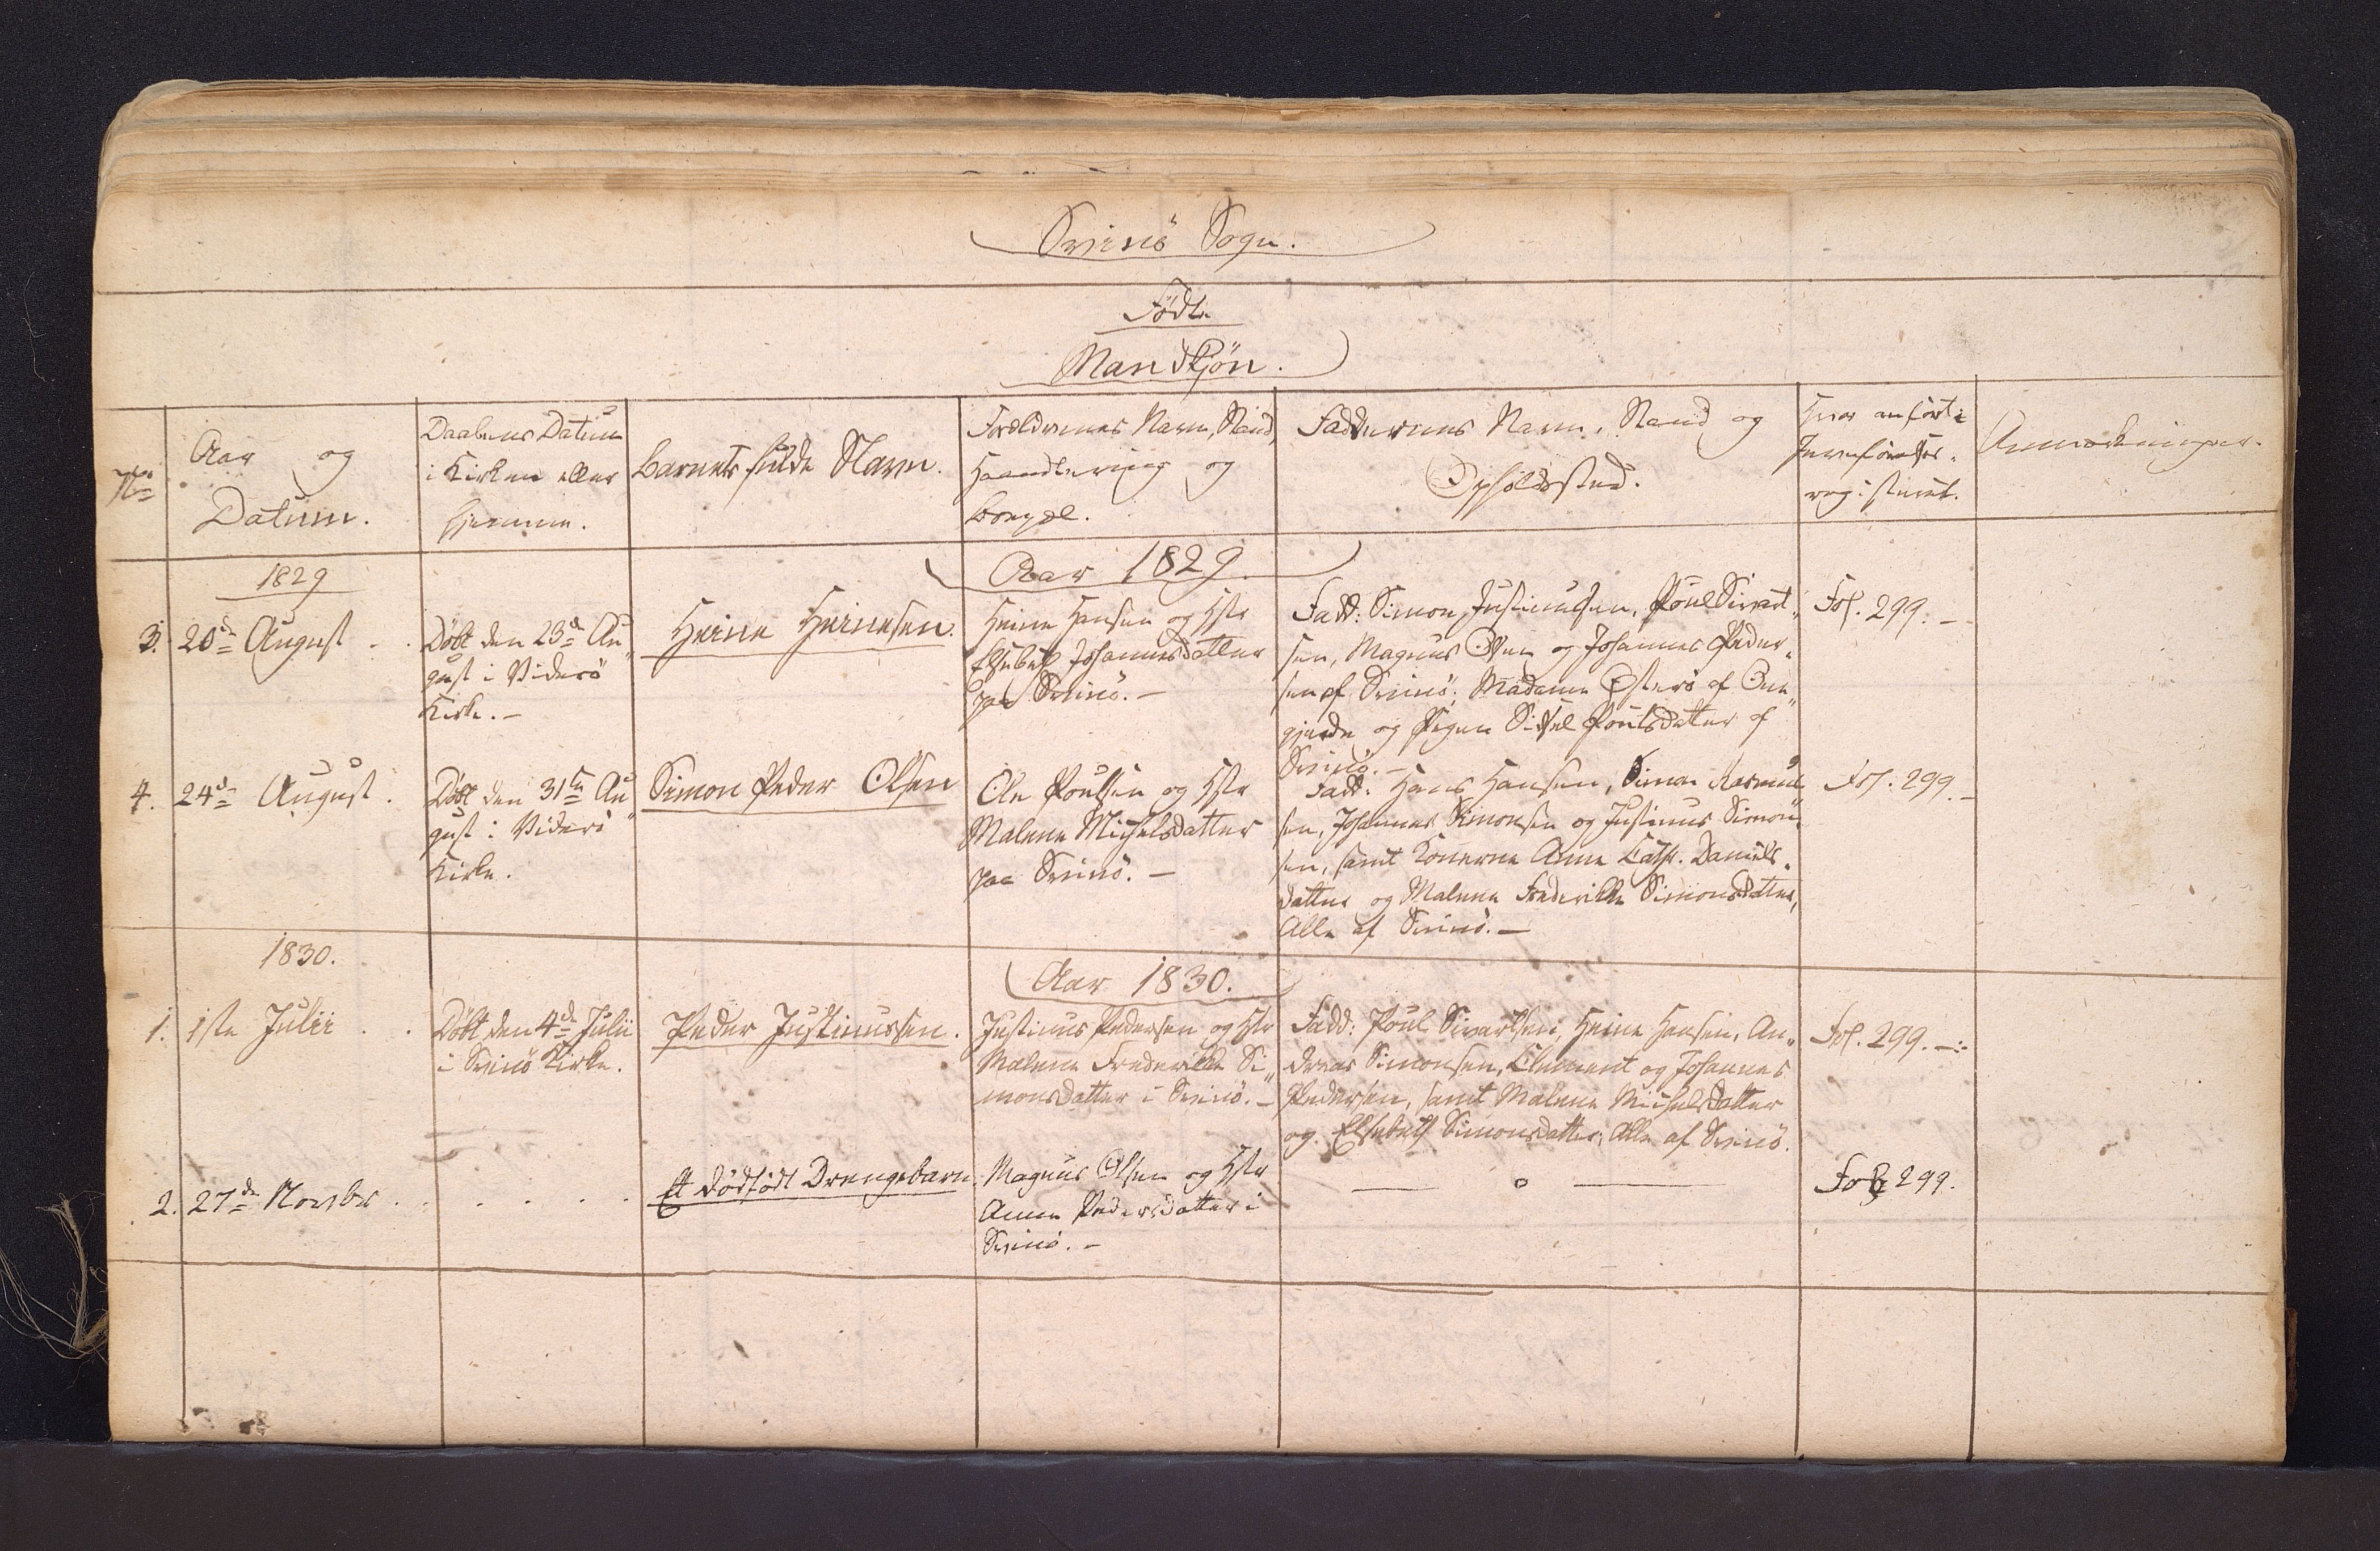 Svinö Sogn.
Födte
Mandkjön.
No
Aar og
Datum.
Daabens Datum
i Kirken eller
hjemme.
Barnets fulde Navn.
Forældrenes Navn, Stand,
Haandtering og
Bopæl.
Faddernes Navn, Stand og
Opholdssted.
Hvor anført i
Jevnførelses-
registeret.
Anmærkninger.
1829
Aar 1829.
3.
20de August
Döbt den 23de Au„
gust i Viderö
Kirke. –
Heine Heinesen.
Heine Hansen og Hstr
Elsebeth Johannesdatter
paa Svinö. –
Fadd: Simon Justinussen, Poul Sivert„
sen, Magnus Olsen og Johannes Peder„
sen af Svinö; Madame Østerö af Qven„
gjerde og Pigen Sidsel Poulsdatter af
Svinö. –
Fol. 299. –
4.
24de August.
Döbt den 31te Au„
gust i Viderö
Kirke.
Simon Peder Olsen
Ole Poulsen og Hstr
Malene Michelsdatter
paa Svinö. –
Fadd: Hans Hansen, Simon Rasmus„
sen, Johannes Simonsen og Justinus Simon„
sen, samt Konerne Anne Cathr. Daniels„
datter og Malene Frederikke Simonsdatter,
Alle af Svinö. –
Fol. 299. –
1830.
Aar 1830.
1.
1ste Julii
Döbt den 4de Julii
i Svinö Kirke.
Peder Justinussen.
Justinus Pedersen og Hstr
Malene Frederikke Si„
monsdatter i Svinö. –
Fadd: Poul Sivertsen, Heine Hansen, An„
dreas Simonsen, Clement og Johannes
Pedersen, samt Malene Michelsdatter
og Elsebeth Simonsdatter; Alle af Svinö.
Fol. 299. –:
2.
27de Novbr
Et dödfödt Drengebarn.
Magnus Olsen og Hstr
Anne Pedersdatter i
Svinö. –
— o —
Fol 299.